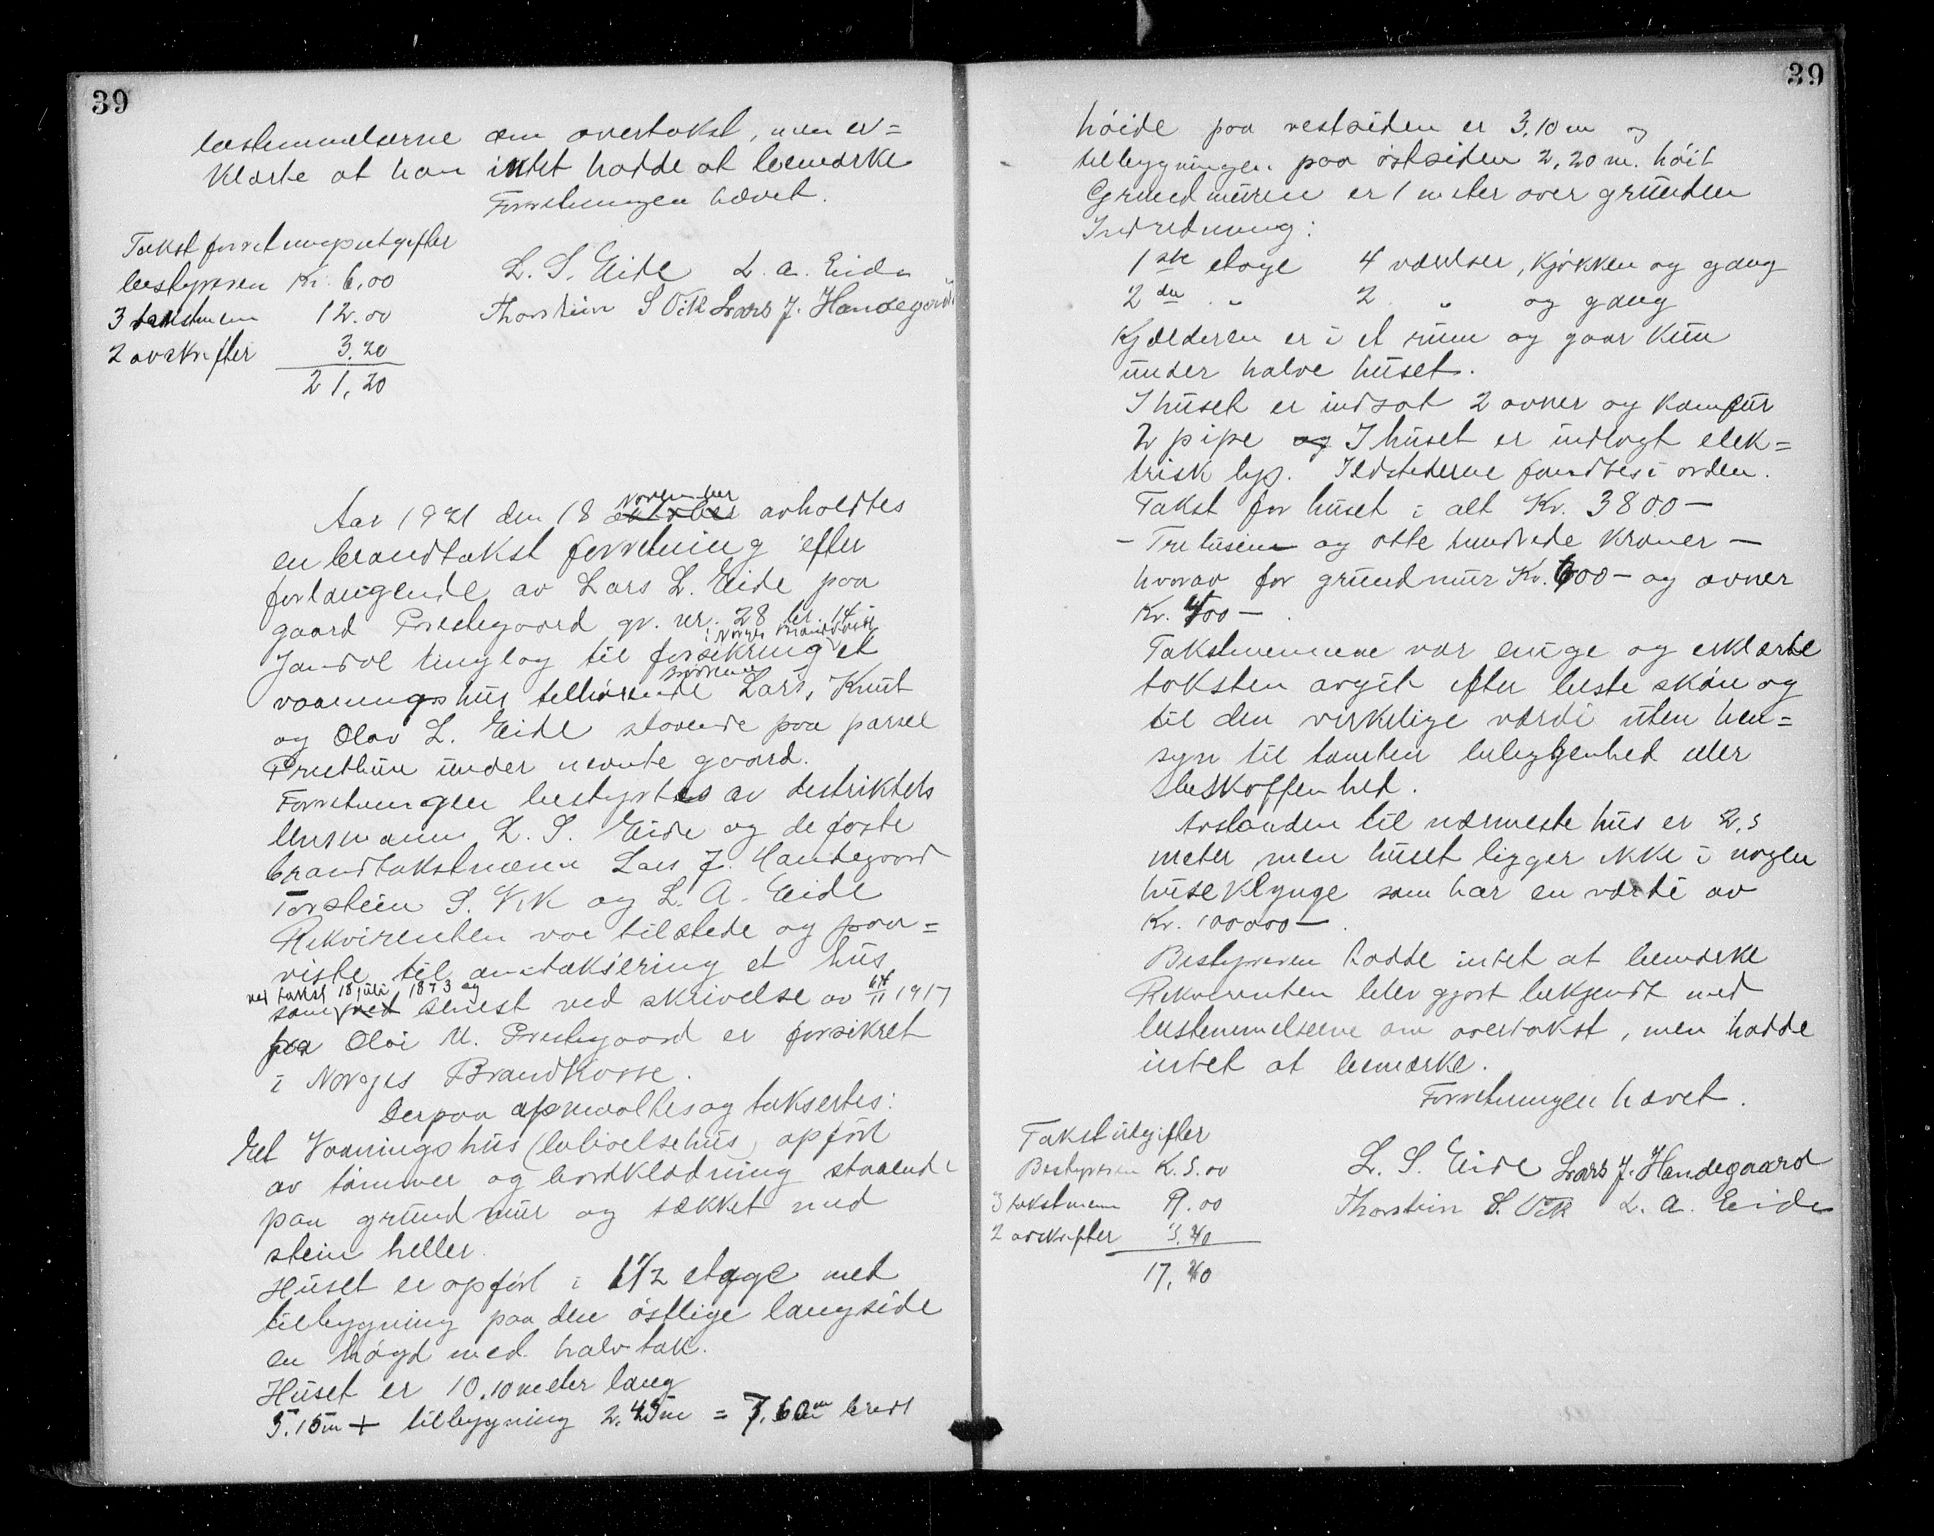 39
bestemmelserne om overtakst, men er=
klærte at han intet hadde at bemærke
Forretningen hævet.
Takstforretningsutgifter
bestyreren Kr. 6,00
3 takstmenn 12.00
2 avskrifter 3.20
21,20
L. S. Eide L. A. Eide
Thorstein S Vik Lars J. Handegaard
Aar 1921 den 18 november avholdtes
en brandtakst forretning efter
forlangende av Lars L. Eide paa
gaard Prestegaard gr. nr. 28 br. 14
i Norges Brandkasse
Jondal tinglag til forsikring et
Brødrene
vaaningshus tilhørende Lars, Knut
og Olav L. Eide staaende paa parsel
under nevnte gaard.
Forretningen bestyrtes av distriktets
lensmann L. S. Eide og de faste
brandtakstmenn Lars J. Handegaard
Torstein S. Vik og L. A. Eide
Rekvirenten var tilstede og paa=
viste til omtaksering et hus
ved takst 18 juli 1873 og
som senest ved skrivelse av 1917
Olai M. Prestegaard er forsikret
i Norges Brandkasse.
Derpaa opmaaltes og taksertes:
Et Vaaningshus (beboelsehus) opført
av tømmer og bordklædning staaende
paa grundmur og tækket med
stein heller.
Huset er opført i 1 1/2 etage med
tilbygning paa den østlige langside
en høgd med halvtak.
Huset er 10,10 meter lang
5.15m + tilbygning 2.45m = 7,60m bredt
39
høide paa vestsiden er 3,10 m og
tilbygningen paa østsiden 2,20 m. høit
Grundmuren er 1 meter over grunden
Indredning:
1ste etage 4 værelser, kjøkken og gang
2den " 2 " og gang
Kjælderen er i et rum og gaar kun
under halve huset.
I huset er indsat 2 ovner og komfur
2 pipe og I huset er indlagt elek=
trisk lys. Ildstederne fandtes i orden.
Takst for huset i alt Kr. 3800 —
— Tretusen og otte hundrede kroner —
hvorav for grundmur Kr. 600 — og ovner
Kr. 400 — .
Takstmennene var enige og erklærte
taksten avgit efter beste skøn og
til den virkelige værdi uten hen=
syn til tomten beliggenhed eller
beskaffenhed.
Avstanden til nærmeste hus er 2,5
meter, men huset ligger ikke i nogen
huseklynge som har en værdi av
Kr. 100000 — .
Bestyreren hadde intet at bemærke
Rekvirenten blev gjort bekjendt med
bestemmelserne om overtakst, men hadde
intet at bemærke.
Forretningen hævet.
Takstutgifter
Bestyreren K. 5.00
3 takstmenn 9.00
2 avskrifter 3.40
17,40
L. S. Eide Lars J. Handegaard
Thorstein S. Vik L. A. Eide